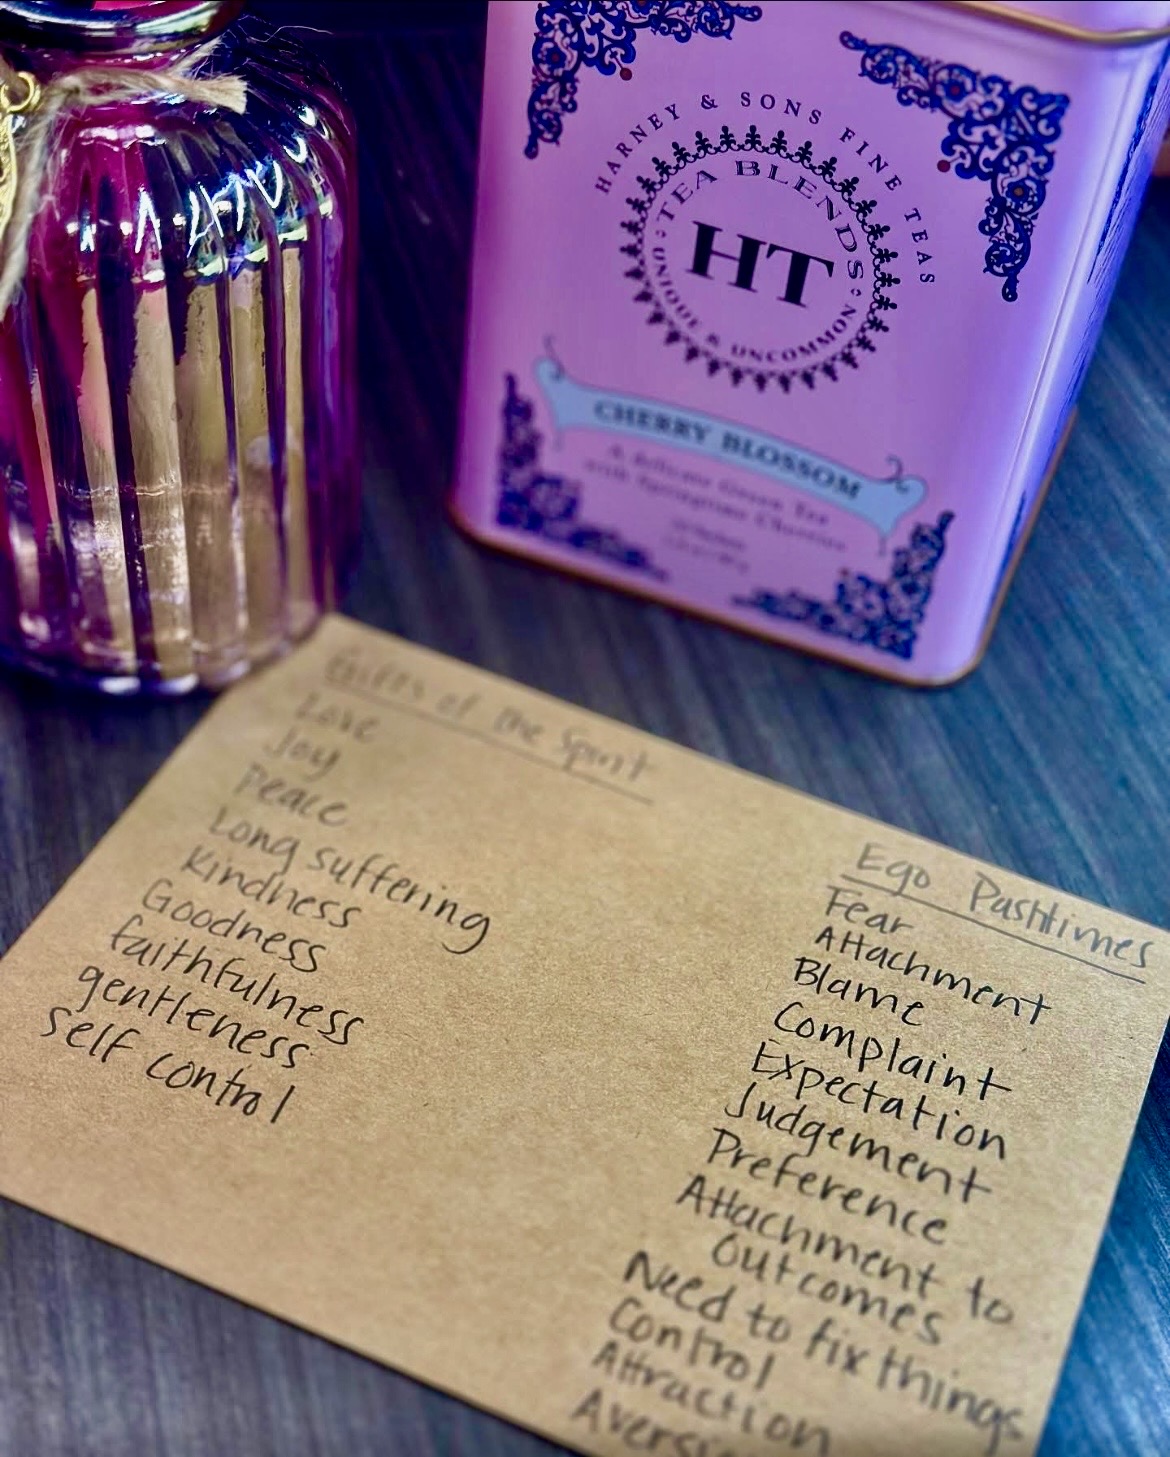 HARNEY & SONS FINE TEAS
TEA BLENDS
HT
UNIQUE & UNCOMMON
CHERRY BLOSSOM
A delicate Green Tea
with Springtime Cherries
Gifts of the Spirit
Love
Joy
Peace
Long suffering
Kindness
Goodness
faithfulness
gentleness
self control
Ego Pashtimes
Fear
Attachment
Blame
Complaint
Expectation
Judgement
Preference
Attachment to
Outcomes
Need to fix things
Control
Attraction